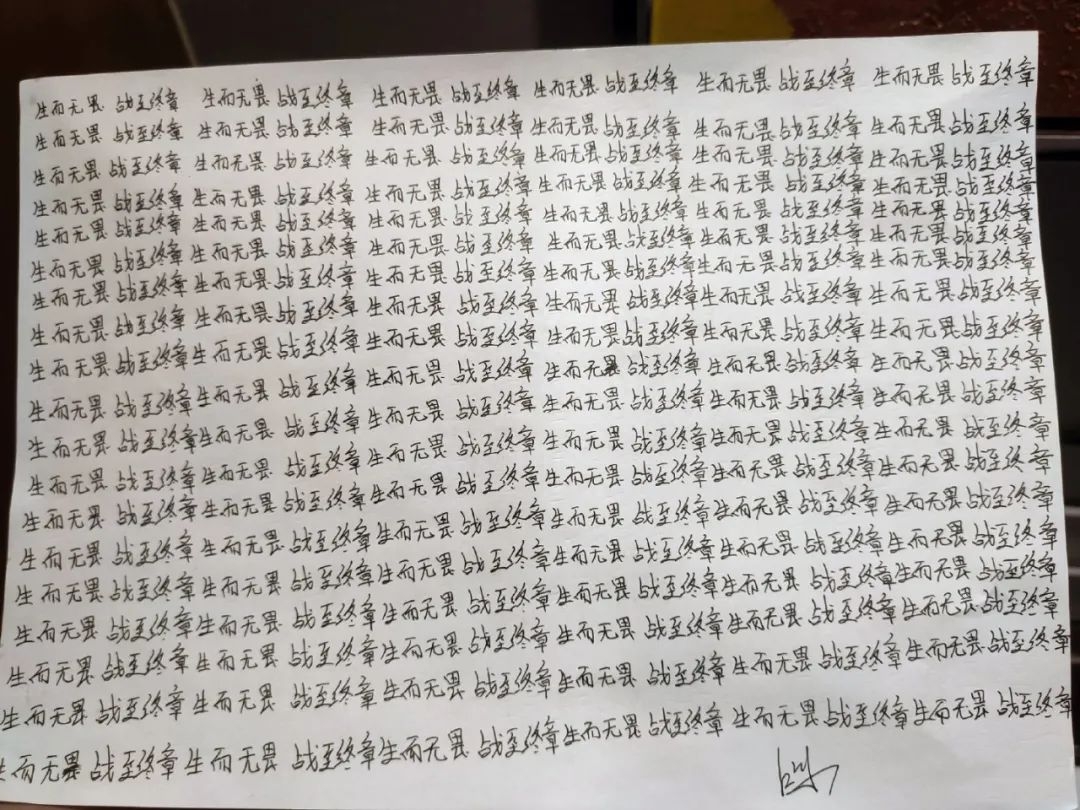 生而无畏 战至终章 生而无畏 战至终章 生而无畏 战至终章 生而无畏 战至终章 生而无畏 战至终章 生而无畏 战至终章
生而无畏 战至终章 生而无畏 战至终章 生而无畏 战至终章 生而无畏 战至终章 生而无畏 战至终章 生而无畏 战至终章
生而无畏 战至终章 生而无畏 战至终章 生而无畏 战至终章 生而无畏 战至终章 生而无畏 战至终章 生而无畏 战至终章
生而无畏 战至终章 生而无畏 战至终章 生而无畏 战至终章 生而无畏 战至终章 生而无畏 战至终章 生而无畏 战至终章
生而无畏 战至终章 生而无畏 战至终章 生而无畏 战至终章 生而无畏 战至终章 生而无畏 战至终章 生而无畏 战至终章
生而无畏 战至终章 生而无畏 战至终章 生而无畏 战至终章 生而无畏 战至终章 生而无畏 战至终章 生而无畏 战至终章
生而无畏 战至终章 生而无畏 战至终章 生而无畏 战至终章 生而无畏 战至终章 生而无畏 战至终章 生而无畏 战至终章
生而无畏 战至终章 生而无畏 战至终章 生而无畏 战至终章 生而无畏 战至终章 生而无畏 战至终章 生而无畏 战至终章
生而无畏 战至终章 生而无畏 战至终章 生而无畏 战至终章 生而无畏 战至终章 生而无畏 战至终章 生而无畏 战至终章
生而无畏 战至终章 生而无畏 战至终章 生而无畏 战至终章 生而无畏 战至终章 生而无畏 战至终章 生而无畏 战至终章
生而无畏 战至终章 生而无畏 战至终章 生而无畏 战至终章 生而无畏 战至终章 生而无畏 战至终章 生而无畏 战至终章
生而无畏 战至终章 生而无畏 战至终章 生而无畏 战至终章 生而无畏 战至终章 生而无畏 战至终章 生而无畏 战至终章
生而无畏 战至终章 生而无畏 战至终章 生而无畏 战至终章 生而无畏 战至终章 生而无畏 战至终章 生而无畏 战至终章
生而无畏 战至终章 生而无畏 战至终章 生而无畏 战至终章 生而无畏 战至终章 生而无畏 战至终章 生而无畏 战至终章
生而无畏 战至终章 生而无畏 战至终章 生而无畏 战至终章 生而无畏 战至终章 生而无畏 战至终章 生而无畏 战至终章
生而无畏 战至终章 生而无畏 战至终章 生而无畏 战至终章 生而无畏 战至终章 生而无畏 战至终章 生而无畏 战至终章
生而无畏 战至终章 生而无畏 战至终章 生而无畏 战至终章 生而无畏 战至终章 生而无畏 战至终章 生而无畏 战至终章
生而无畏 战至终章 生而无畏 战至终章 生而无畏 战至终章 生而无畏 战至终章 生而无畏 战至终章 生而无畏 战至终章
生而无畏 战至终章 生而无畏 战至终章 生而无畏 战至终章 生而无畏 战至终章 生而无畏 战至终章 生而无畏 战至终章